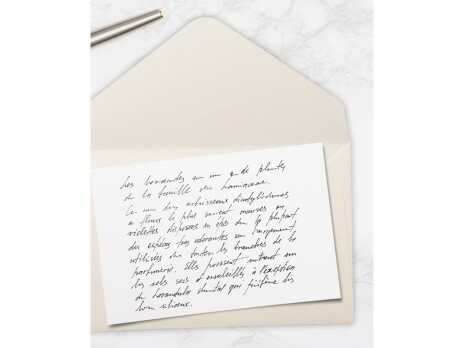 Les lavandes sont un genre de plantes
de la famille des lamiaceae.
Ce sont des arbrisseaux dicotylédones
à fleurs le plus souvent mauves ou
violettes disposées en épis dont la plupart
des espèces très odorantes sont largement
utilisées dans toutes les branches de la
parfumerie. Elles poussent surtout sur
les sols secs et ensoleillés à l'exception
de lavandula stoechas qui préfère les
sols siliceux.